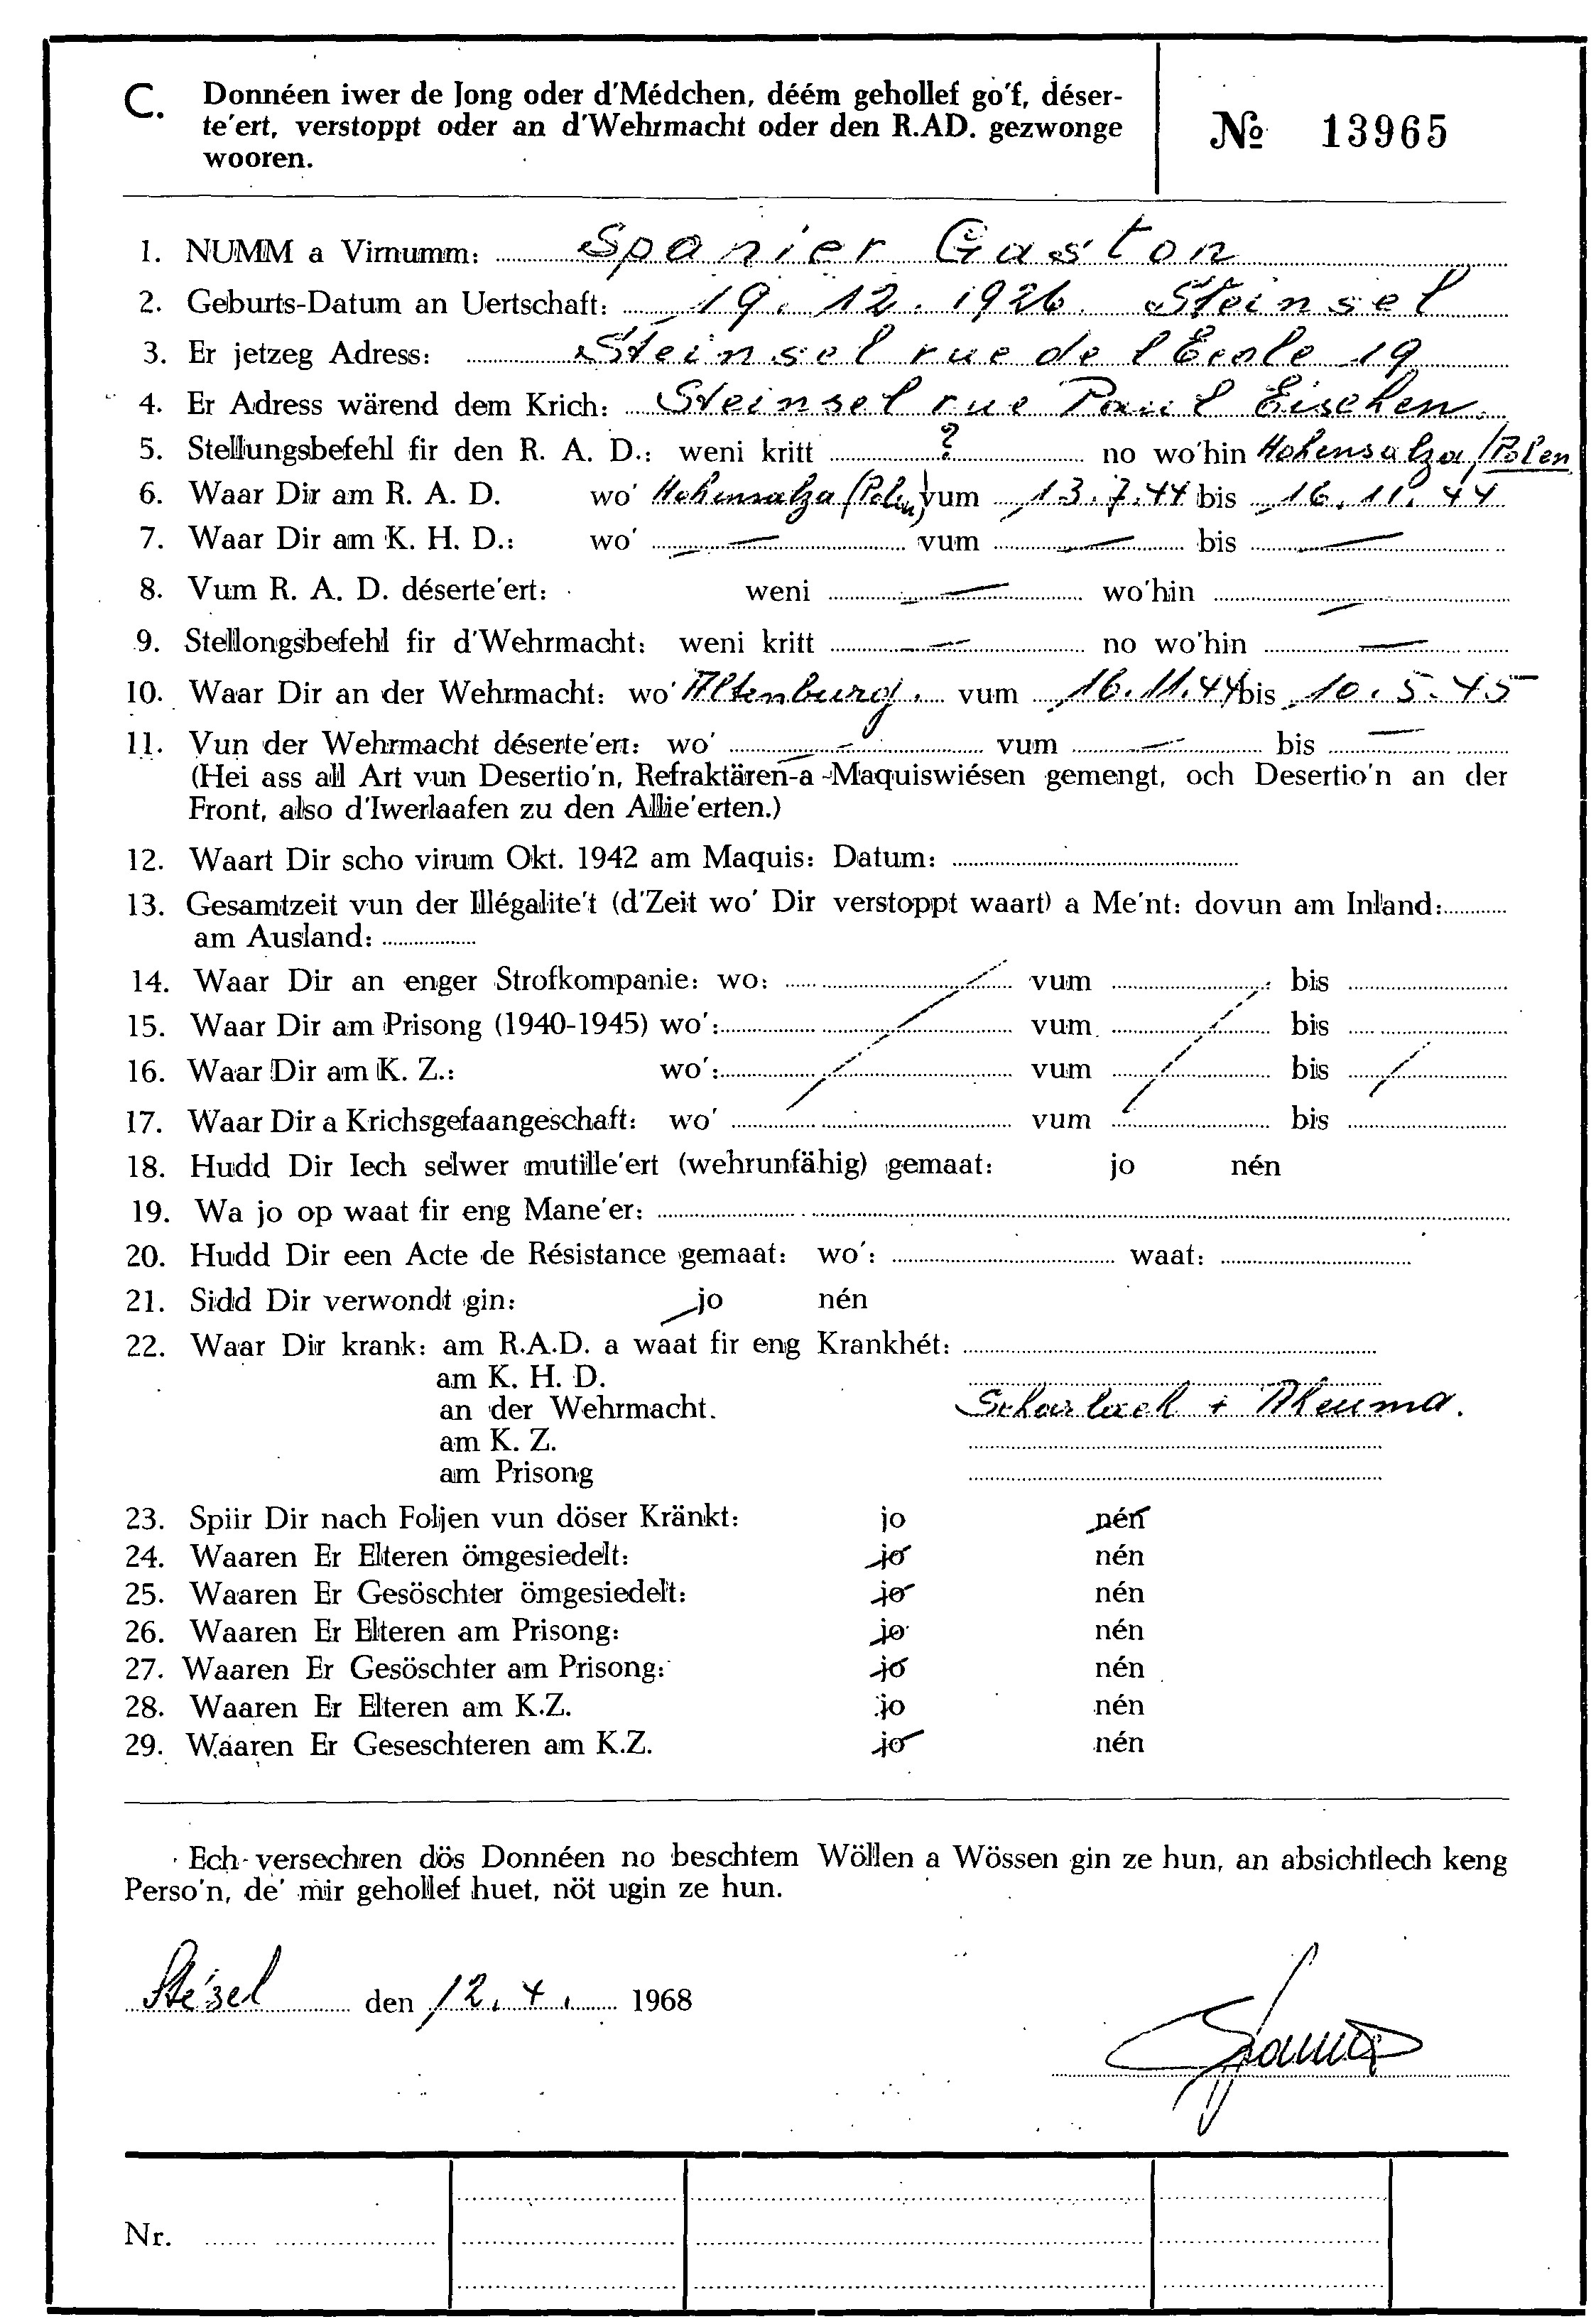 C. Donnéen iwer de Jong oder d'Médchen, déém gehollef go'f, déser-
te'ert, verstoppt oder an d'Wehrmacht oder den R.AD. gezwonge
wooren.
№ 13965
1. NUMM a Virnumm: Spanier Gaston
2. Geburts-Datum an Uertschaft: 19. 12. 1926. Steinsel
3. Er jetzeg Adress: Steinsel rue de l'Ecole 19
4. Er Adress wärend dem Krich: Steinsel rue Paul Eischen
5. Stellungsbefehl fir den R. A. D.: weni kritt ? no wo'hin Hohensalza/Polen
6. Waar Dir am R. A. D. wo' Hohensalza (Polen) vum 13.7.44 bis 16.11.44
7. Waar Dir am K. H. D.: wo' — vum — bis —
8. Vum R. A. D. déserte'ert: weni — wo'hin —
9. Stellongsbefehl fir d'Wehrmacht: weni kritt — no wo'hin —
10. Waar Dir an der Wehrmacht: wo' Altenburg. vum 16.11.44 bis 10.5.45
11. Vun der Wehrmacht déserte'ert: wo' — vum — bis —
(Hei ass all Art vun Desertio'n, Refraktären-a-Maquiswiésen gemengt, och Desertio'n an der
Front, also d'Iwerlaafen zu den Allie'erten.)
12. Waart Dir scho virum Okt. 1942 am Maquis: Datum:
13. Gesamtzeit vun der Illégalite't (d'Zeit wo' Dir verstoppt waart) a Me'nt: dovun am Inland:
am Ausland:
14. Waar Dir an enger Strofkompanie: wo: vum bis
15. Waar Dir am Prisong (1940-1945) wo': vum bis
16. Waar Dir am K. Z.: wo': vum bis
17. Waar Dir a Krichsgefaangeschaft: wo' vum bis
18. Hudd Dir Iech selwer mutille'ert (wehrunfähig) gemaat: jo nén
19. Wa jo op waat fir eng Mane'er:
20. Hudd Dir een Acte de Résistance gemaat: wo': waat:
21. Sidd Dir verwondt gin: jo nén
22. Waar Dir krank: am R.A.D. a waat fir eng Krankhét:
am K. H. D.
an der Wehrmacht. Scharlach + Rheuma.
am K. Z.
am Prisong
23. Spiir Dir nach Foljen vun döser Kränkt: jo nén
24. Waaren Er Elteren ömgesiedelt: jo nén
25. Waaren Er Gesöschter ömgesiedelt: jo nén
26. Waaren Er Elteren am Prisong: jo nén
27. Waaren Er Gesöschter am Prisong: jo nén
28. Waaren Er Elteren am K.Z. jo nén
29. Waaren Er Geseschteren am K.Z. jo nén
Ech versechren dös Donnéen no beschtem Wöllen a Wössen gin ze hun, an absichtlech keng
Perso'n, de' mir gehollef huet, nöt ugin ze hun.
Ste'sel den 12. 4. 1968
Nr.